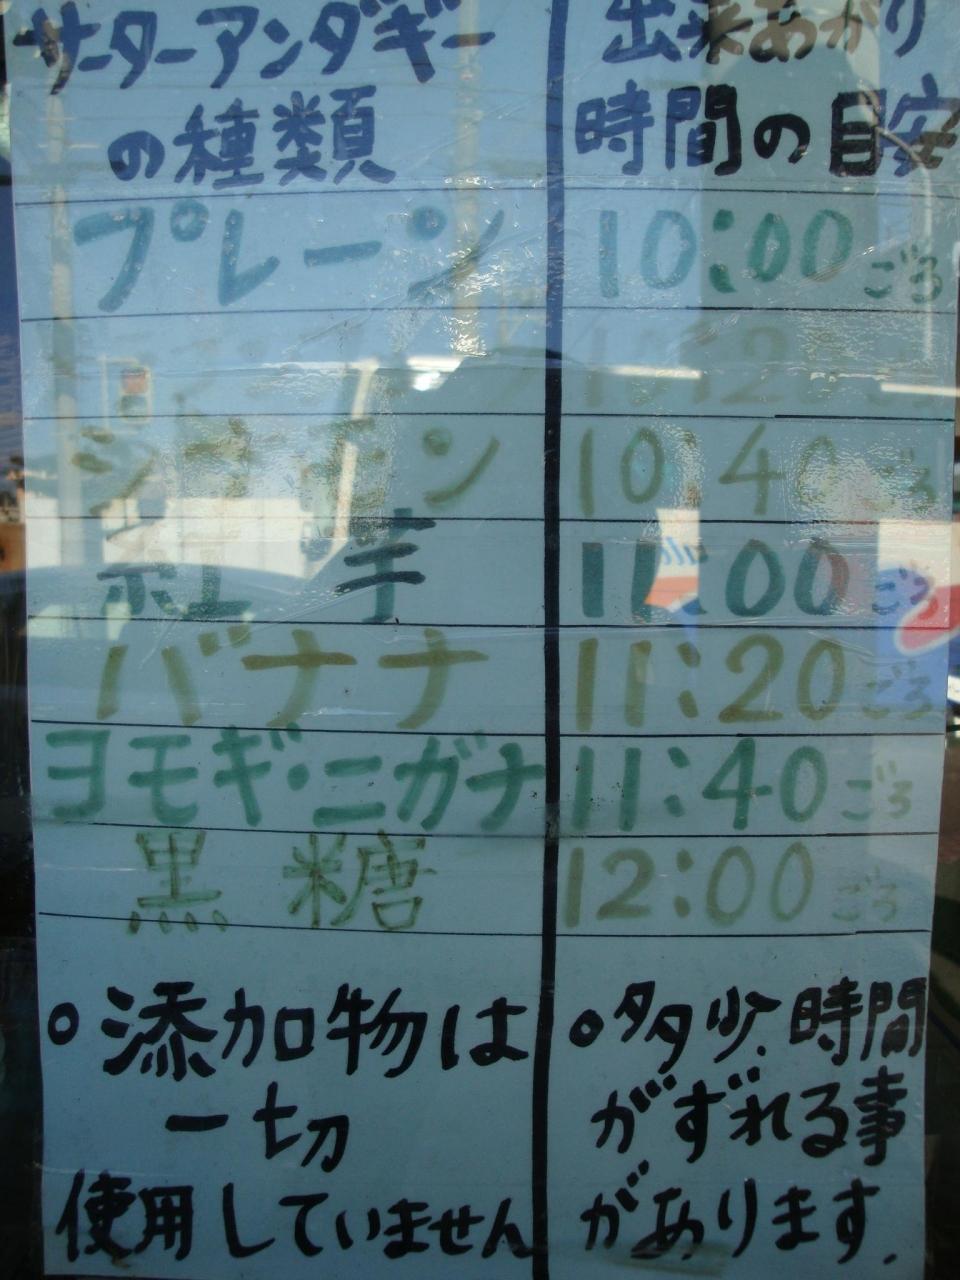 サーターアンダギー
の種類
出来あがり
時間の目安
プレーン 10:00ごろ
シナモン 10:40ごろ
紅芋 11:00ごろ
バナナ 11:20ごろ
ヨモギ・ニガナ 11:40ごろ
黒糖 12:00ごろ
○添加物は
一切
使用していません
○多少、時間
がずれる事
があります.